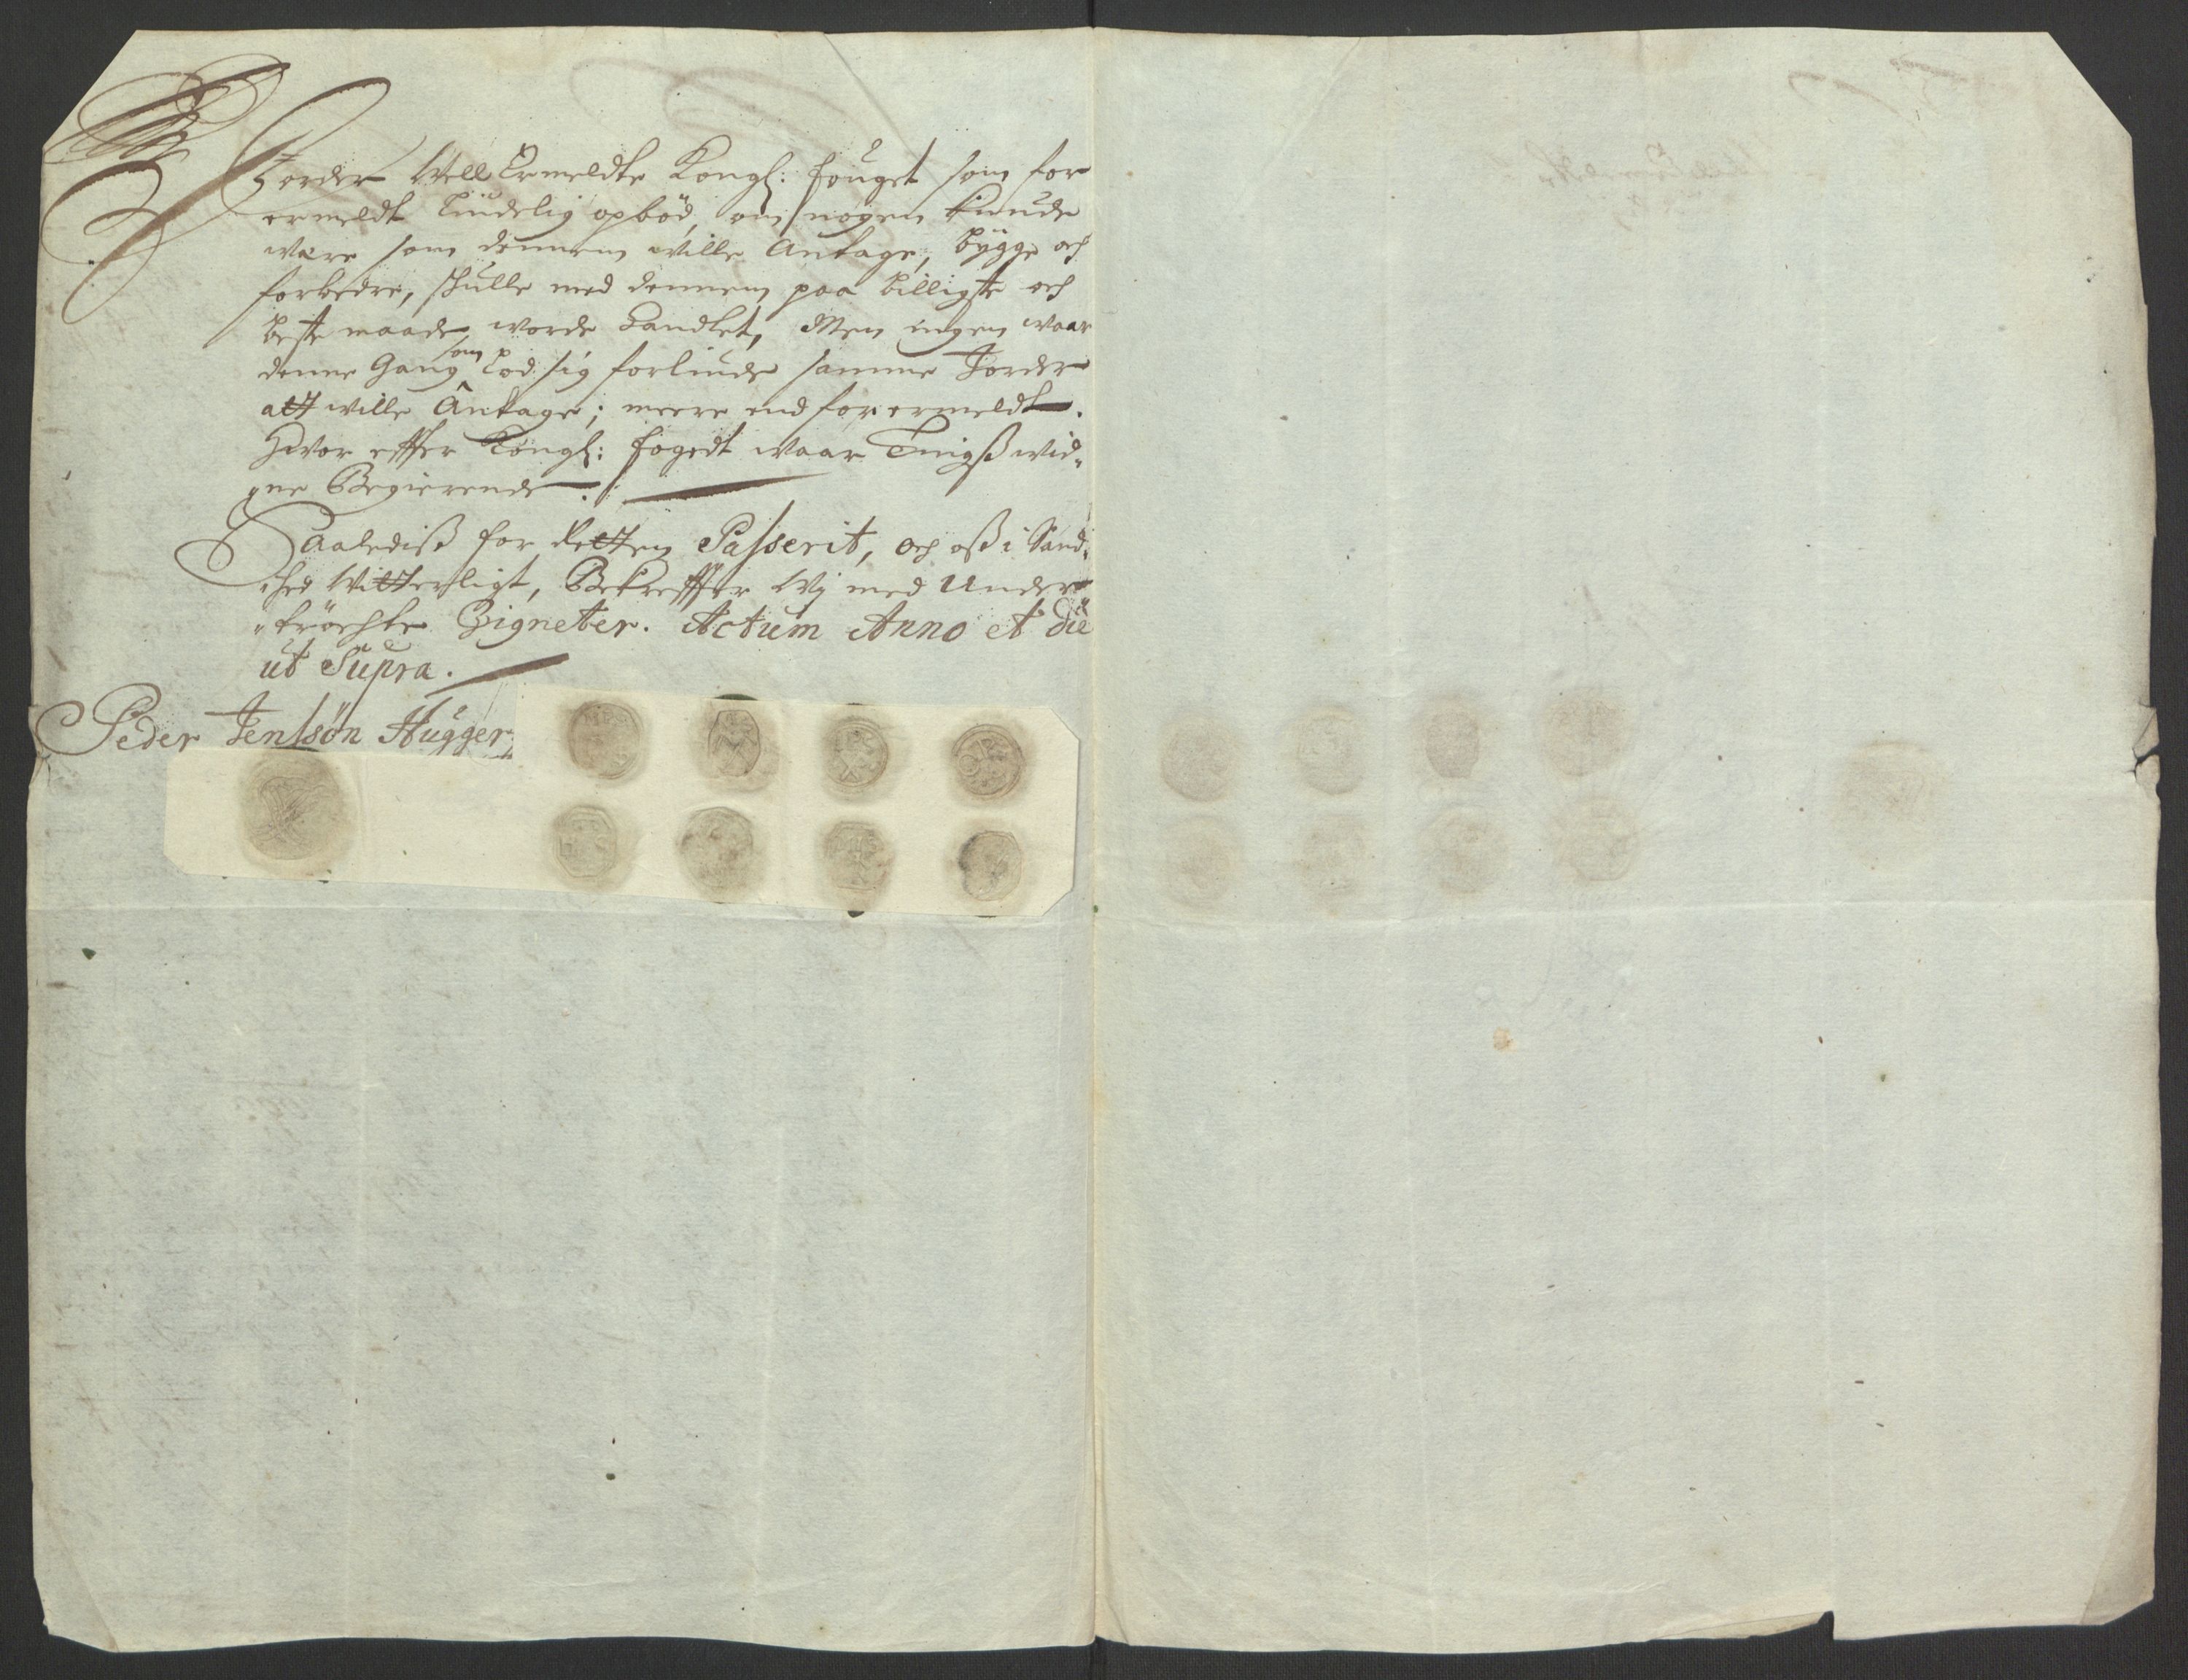 Jorder Well Ermeldte Kongl: fouget som for
ermeldt liudelig opböd, om nogen kunde
være som dennem wille Antage, bÿgge och
forbedre, skulle med dennem paa billigste och
beste maade worde handlet, Men ingen waar
denne Gang som lod sig forliude samme Jorder
att wille Antage; meere end for ermeldt.
Hvor effter Kongl: fogedt waar Tingß wid„
„ne Begierende ./.
Saalediß for Retten Passerit, och oß i Sand„
„hed Witterligt, Bekreffter Wj med Under
„tröchte Zigneter. Actum Anno et die
ut Supra.
Peder Jenssön Hugger